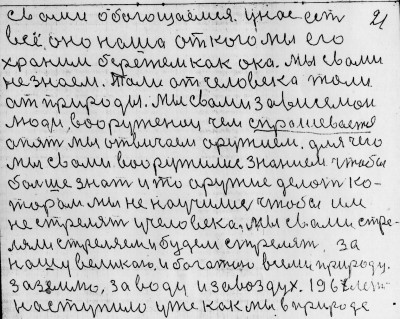 21
свами обогощаемся. унас ест
всё, оно наша от кого мы его
храним бережем как ока. мы свами
не знаем. Толи от человека толи
от природы. мы свами зависемои
люди, вооружении чем спрашевается
опят мы отвичаем оружием. для чего
мы свами вооружилис знанием чтоба
болше знат и то оружие делот ко-
торам мы не научилис чтоба им
не стрелят учеловека, мы свами стре-
ляли стреляем, и будем стрелят. за
нашу великаю, и богатаю всеми природу.
за землю, за воду и за воздух. 196
наступило уже как мы в природе